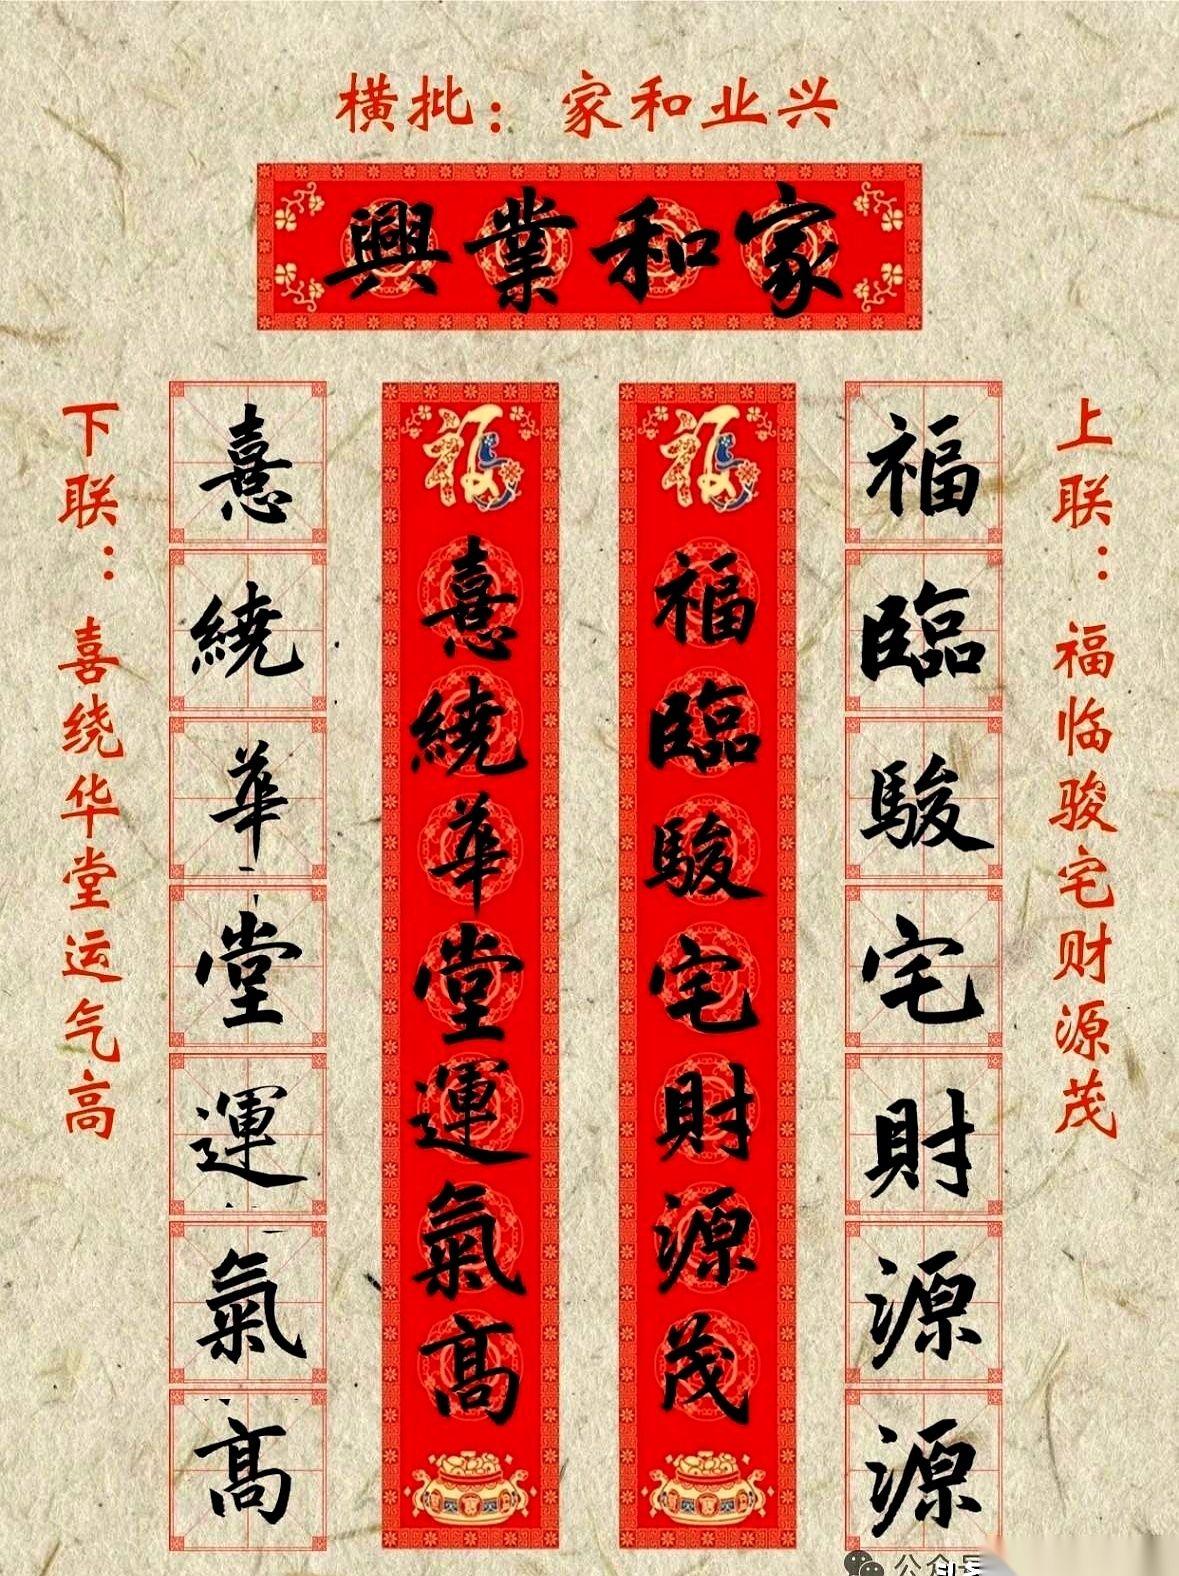 横批：家和业兴
興業和家
上联：福临骏宅财源茂
福臨駿宅財源源
福
福臨駿宅財源茂
福
憙繞華堂運氣高
憙繞華堂運氣高
下联：喜绕华堂运气高
公众号